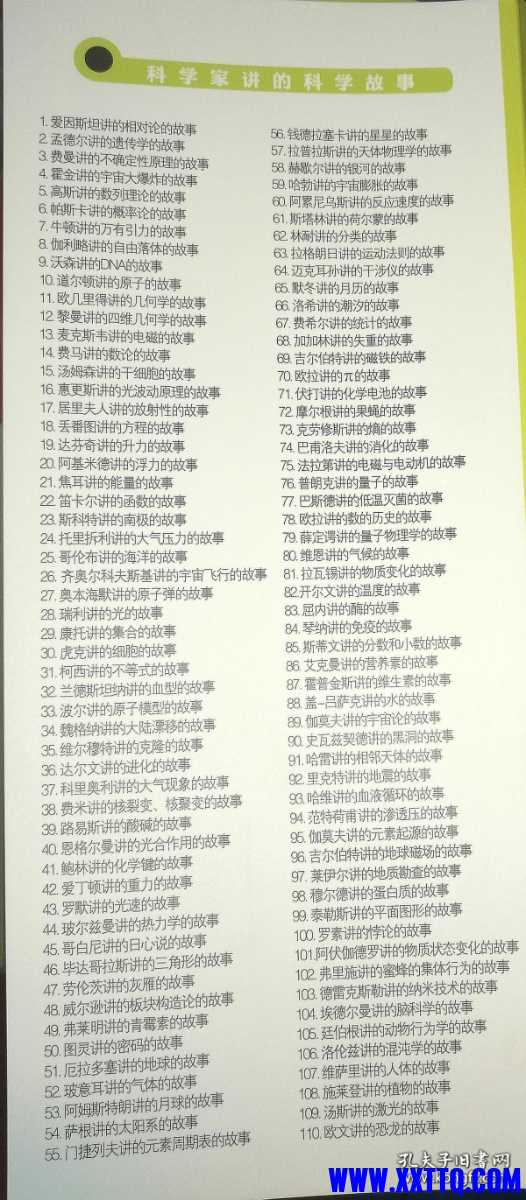 科学家讲的科学故事
1. 爱因斯坦讲的相对论的故事
2. 孟德尔讲的遗传学的故事
3. 费曼讲的不确定性原理的故事
4. 霍金讲的宇宙大爆炸的故事
5. 高斯讲的数列理论的故事
6. 帕斯卡讲的概率论的故事
7. 牛顿讲的万有引力的故事
8. 伽利略讲的自由落体的故事
9. 沃森讲的DNA的故事
10. 道尔顿讲的原子的故事
11. 欧几里得讲的几何学的故事
12. 黎曼讲的四维几何学的故事
13. 麦克斯韦讲的电磁的故事
14. 费马讲的数论的故事
15. 汤姆森讲的干细胞的故事
16. 惠更斯讲的光波动原理的故事
17. 居里夫人讲的放射性的故事
18. 丢番图讲的方程的故事
19. 达芬奇讲的升力的故事
20. 阿基米德讲的浮力的故事
21. 焦耳讲的能量的故事
22. 笛卡尔讲的函数的故事
23. 斯科特讲的南极的故事
24. 托里拆利讲的大气压力的故事
25. 哥伦布讲的海洋的故事
26. 齐奥尔科夫斯基讲的宇宙飞行的故事
27. 奥本海默讲的原子弹的故事
28. 瑞利讲的光的故事
29. 康托讲的集合的故事
30. 虎克讲的细胞的故事
31. 柯西讲的不等式的故事
32. 兰德斯坦纳讲的血型的故事
33. 波尔讲的原子模型的故事
34. 魏格纳讲的大陆漂移的故事
35. 维尔穆特讲的克隆的故事
36. 达尔文讲的进化的故事
37. 科里奥利讲的大气现象的故事
38. 费米讲的核裂变、核聚变的故事
39. 路易斯讲的酸碱的故事
40. 恩格尔曼讲的光合作用的故事
41. 鲍林讲的化学键的故事
42. 爱丁顿讲的重力的故事
43. 罗默讲的光速的故事
44. 玻尔兹曼讲的热力学的故事
45. 哥白尼讲的日心说的故事
46. 毕达哥拉斯讲的三角形的故事
47. 劳伦茨讲的灰雁的故事
48. 威尔逊讲的板块构造论的故事
49. 弗莱明讲的青霉素的故事
50. 图灵讲的密码的故事
51. 厄拉多塞讲的地球的故事
52. 玻意耳讲的气体的故事
53. 阿姆斯特朗讲的月球的故事
54. 萨根讲的太阳系的故事
55. 门捷列夫讲的元素周期表的故事
56. 钱德拉塞卡讲的星星的故事
57. 拉普拉斯讲的天体物理学的故事
58. 赫歇尔讲的银河的故事
59. 哈勃讲的宇宙膨胀的故事
60. 阿累尼乌斯讲的反应速度的故事
61. 斯塔林讲的荷尔蒙的故事
62. 林耐讲的分类的故事
63. 拉格朗日讲的运动法则的故事
64. 迈克耳孙讲的干涉仪的故事
65. 默冬讲的月历的故事
66. 洛希讲的潮汐的故事
67. 费希尔讲的统计的故事
68. 加加林讲的失重的故事
69. 吉尔伯特讲的磁铁的故事
70. 欧拉讲的π的故事
71. 伏打讲的化学电池的故事
72. 摩尔根讲的果蝇的故事
73. 克劳修斯讲的熵的故事
74. 巴甫洛夫讲的消化的故事
75. 法拉第讲的电磁与电动机的故事
76. 普朗克讲的量子的故事
77. 巴斯德讲的低温灭菌的故事
78. 欧拉讲的数的历史的故事
79. 薛定谔讲的量子物理学的故事
80. 维恩讲的气候的故事
81. 拉瓦锡讲的物质变化的故事
82.开尔文讲的温度的故事
83. 屈内讲的酶的故事
84. 琴纳讲的免疫的故事
85. 斯蒂文讲的分数和小数的故事
86. 艾克曼讲的营养素的故事
87. 霍普金斯讲的维生素的故事
88. 盖-吕萨克讲的水的故事
89. 伽莫夫讲的宇宙论的故事
90. 史瓦兹契德讲的黑洞的故事
91. 哈雷讲的相邻天体的故事
92. 里克特讲的地震的故事
93. 哈维讲的血液循环的故事
94. 范特荷甫讲的渗透压的故事
95. 伽莫夫讲的元素起源的故事
96. 吉尔伯特讲的地球磁场的故事
97. 莱伊尔讲的地质勘查的故事
98. 穆尔德讲的蛋白质的故事
99. 泰勒斯讲的平面图形的故事
100. 罗素讲的悖论的故事
101.阿伏伽德罗讲的物质状态变化的故事
102. 弗里施讲的蜜蜂的集体行为的故事
103. 德雷克斯勒讲的纳米技术的故事
104. 埃德尔曼讲的脑科学的故事
105. 廷伯根讲的动物行为学的故事
106. 洛伦兹讲的混沌学的故事
107. 维萨里讲的人体的故事
108. 施莱登讲的植物的故事
109. 汤斯讲的激光的故事
110. 欧文讲的恐龙的故事
孔夫子旧书网
WWW.XXTTQ.COM